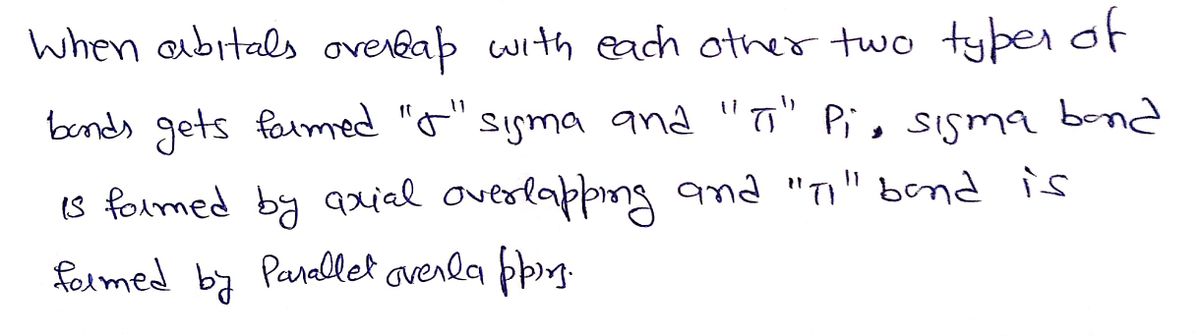 When orbitals overlap with each other two types of
bonds gets formed "σ" sigma and "π" Pi, sigma bond
is formed by axial overlapping and "π" bond is
formed by Parallel overlapping.